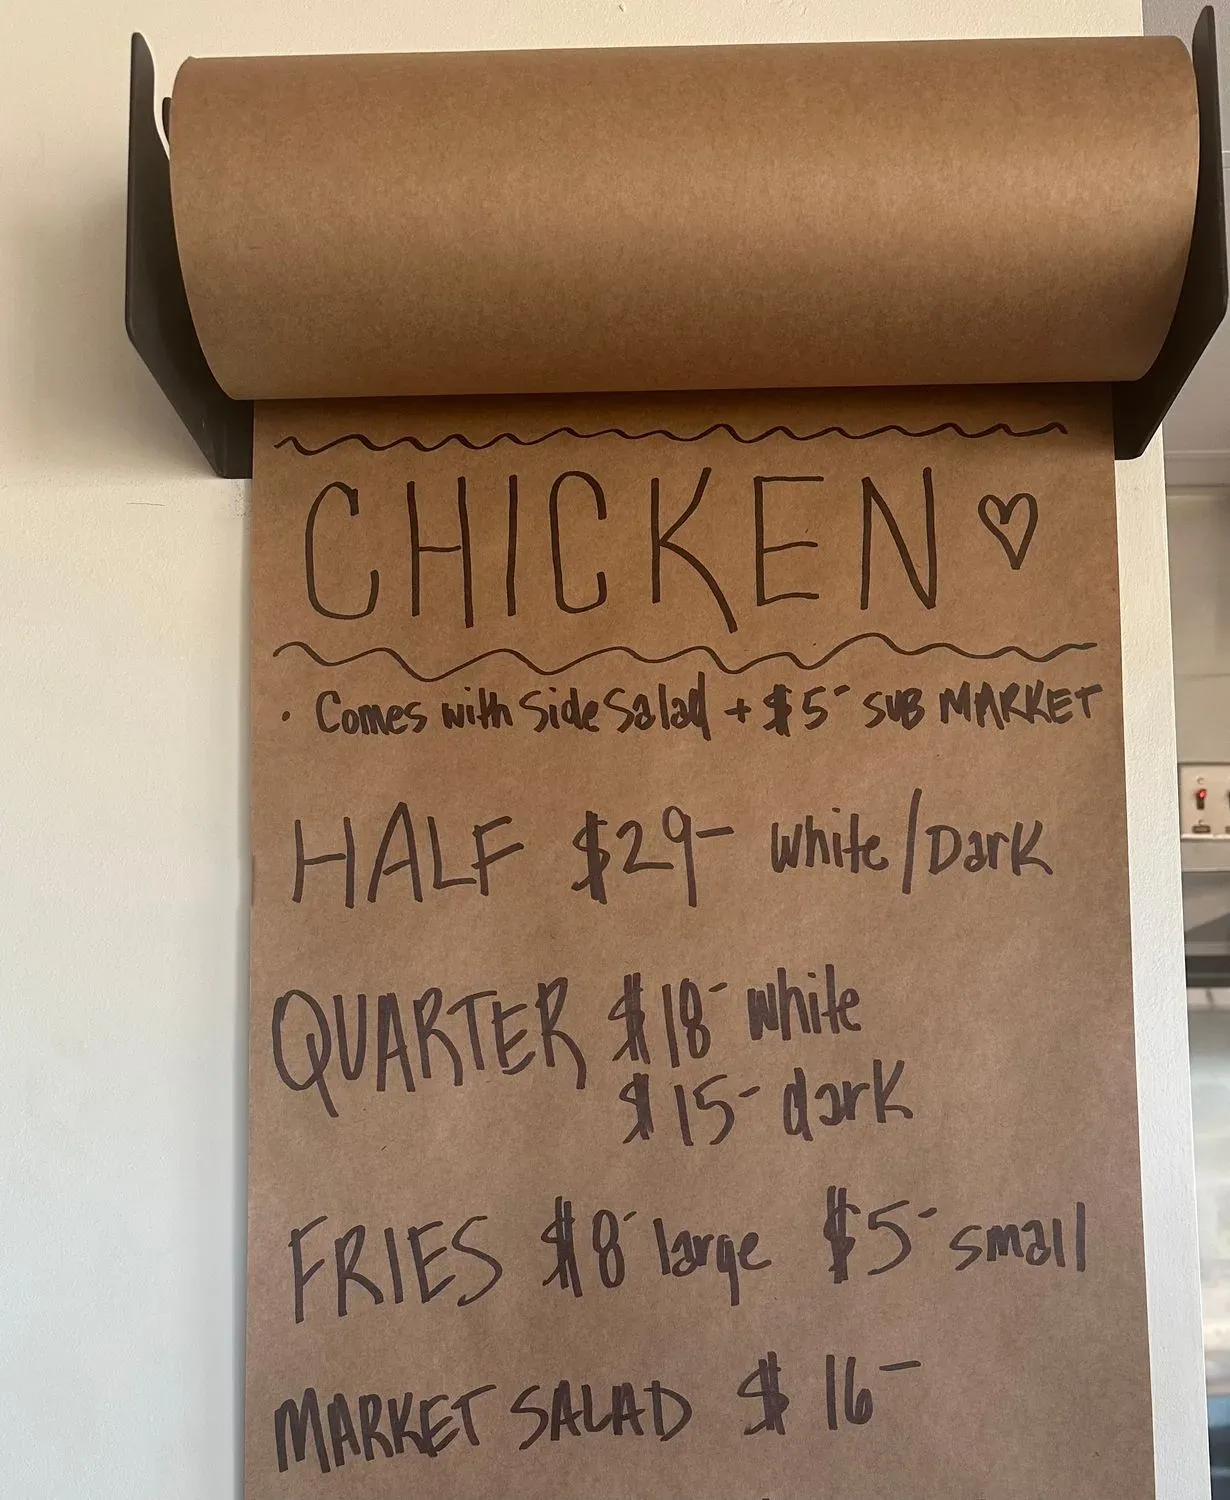 CHICKEN ♡
· Comes with Side Salad + $5- SUB MARKET
HALF $29- white/Dark
QUARTER $18- white
$15- dark
FRIES $8- large $5- small
MARKET SALAD $16-